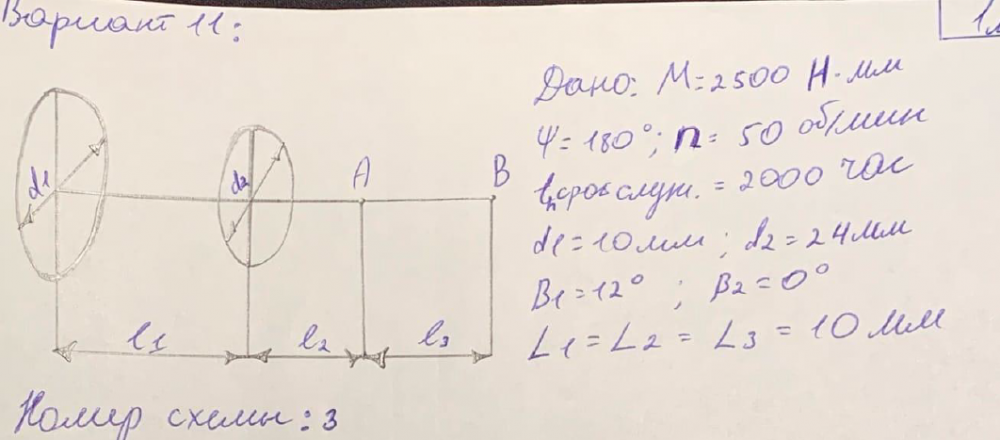 Вариант 11:
Дано: М=2500 Н·мм
Ψ=180°; n=50 об/мин
срок служ. = 2000 час
d1=10мм; d2=24мм
В1=12° ; В2=0°
L1=L2=L3=10мм
d1 d2 А В
l1 l2 l3
Номер схемы: 3